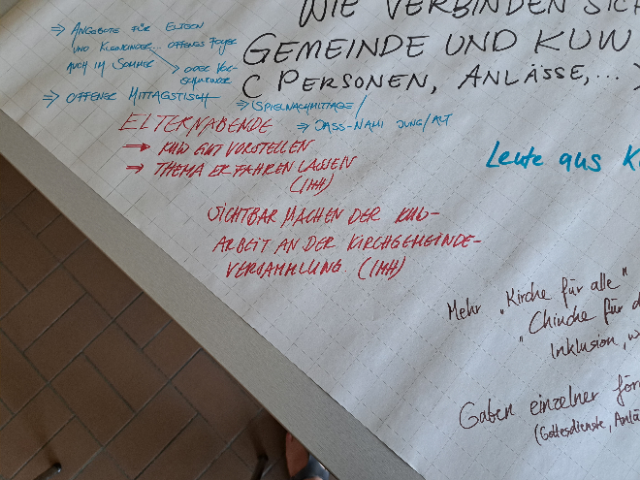 WIE VERBINDEN SICH
GEMEINDE UND KUW
( PERSONEN, ANLÄSSE,... )
⇒ ANGEBOTE FÜR ELTERN
UND KLEINKINDER... OFFENES FOYER
AUCH IM SOMMER
> ODER VOR-
⇒ OFFENER MITTAGSTISCH
⇒ SPIELNACHMITTAGE/
⇒ JASS-NAMI JUNG/ALT
ELTERNABENDE
→ KUW GUT VORSTELLEN
→ THEMA ERFAHREN LASSEN
(!!!)
SICHTBAR MACHEN DER KUW-
ARBEIT AN DER KIRCHGEMEINDE-
VERSAMMLUNG (!!!)
Leute aus K
Mehr „Kirche für alle"
"Chinche für d
Inklusion, w
Gaben einzelner för
(Gottesdienste, Anlä